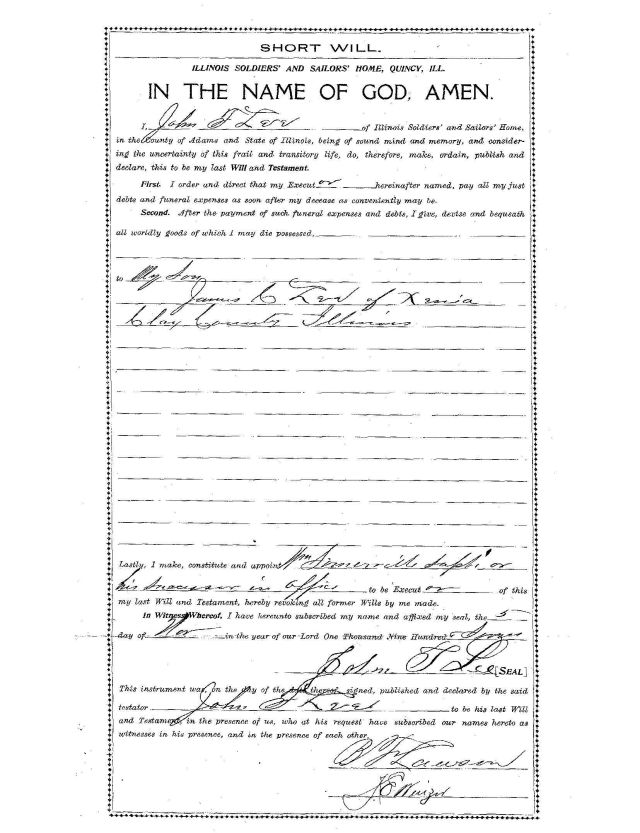 SHORT WILL.
ILLINOIS SOLDIERS' AND SAILORS' HOME, QUINCY, ILL.
IN THE NAME OF GOD, AMEN.
I, John F Lee of Illinois Soldiers' and Sailors' Home,
in the County of Adams and State of Illinois, being of sound mind and memory, and consider-
ing the uncertainty of this frail and transitory life, do, therefore, make, ordain, publish and
declare, this to be my last Will and Testament.
First. I order and direct that my Execut or hereinafter named, pay all my just
debts and funeral expenses as soon after my decease as conveniently may be.
Second. After the payment of such funeral expenses and debts, I give, devise and bequeath
all worldly goods of which I may die possessed,
to My Son
James C Lee of Xenia
Clay County Illinois
Lastly, I make, constitute and appoint Wm Somerville Supt. or
his successor in office to be Execut or of this
my last Will and Testament, hereby revoking all former Wills by me made.
In Witness Whereof, I have hereunto subscribed my name and affixed my seal, the 5
day of Nov in the year of our Lord One Thousand Nine Hundred &
John F Lee [SEAL]
This instrument was, on the day of the thereof, signed, published and declared by the said
testator John F Lee to be his last Will
and Testament, in the presence of us, who at his request have subscribed our names hereto as
witnesses in his presence, and in the presence of each other.
B F Lawson